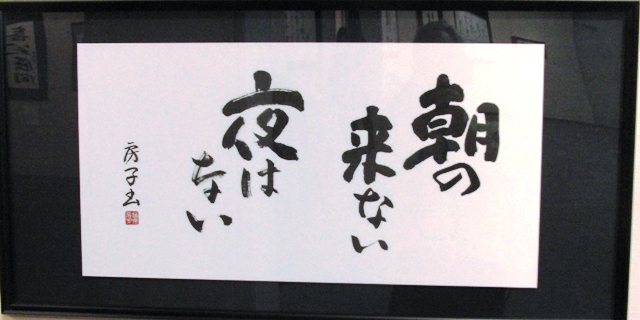 朝の
来ない
夜は
ない
房子书